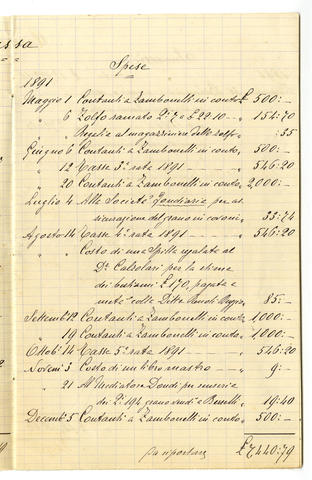 ssa
Spese
1891
Maggio 1 Contanti a Zambonelli in conto £ 500:-
" 6 Zolfo ramato Q.li 7 a £ 22.10 - " 154:70
" Regali al magazziniere dello zolfo " :35
Giugno 6 Contanti a Zambonelli in conto " 500:-
" 12 Tasse 3ª rata 1891 - " 546:20
" 20 Contanti a Zambonelli in conto " 2,000:-
Luglio 4 Alla Società Fondiaria per as
sicurazione del grano in covoni " 33:74
Agosto 14 Tasse 4ª rata 1891 - " 546:20
" " Costo di una Spilla regalata al
Dr. Calzolari per la stima
dei bestiami £ 170, pagata a
metà colla Ditta 85:-
Settemb 12 Contanti a Zambonelli in conto " 1000:-
" 19 Contanti a Zambonelli in conto " 1,000:-
Ottob 14 Tasse 5ª rata 1891 - " 546:20
Novem 5 Costo di un libro mastro - " 9:-
" 21 Al Mediatore Dondi per senseria
dei Q.li 194 grano venduti a 19:40
Decemb 5 Contanti a Zambonelli in conto " 500:-
da riportare £ 7440:79